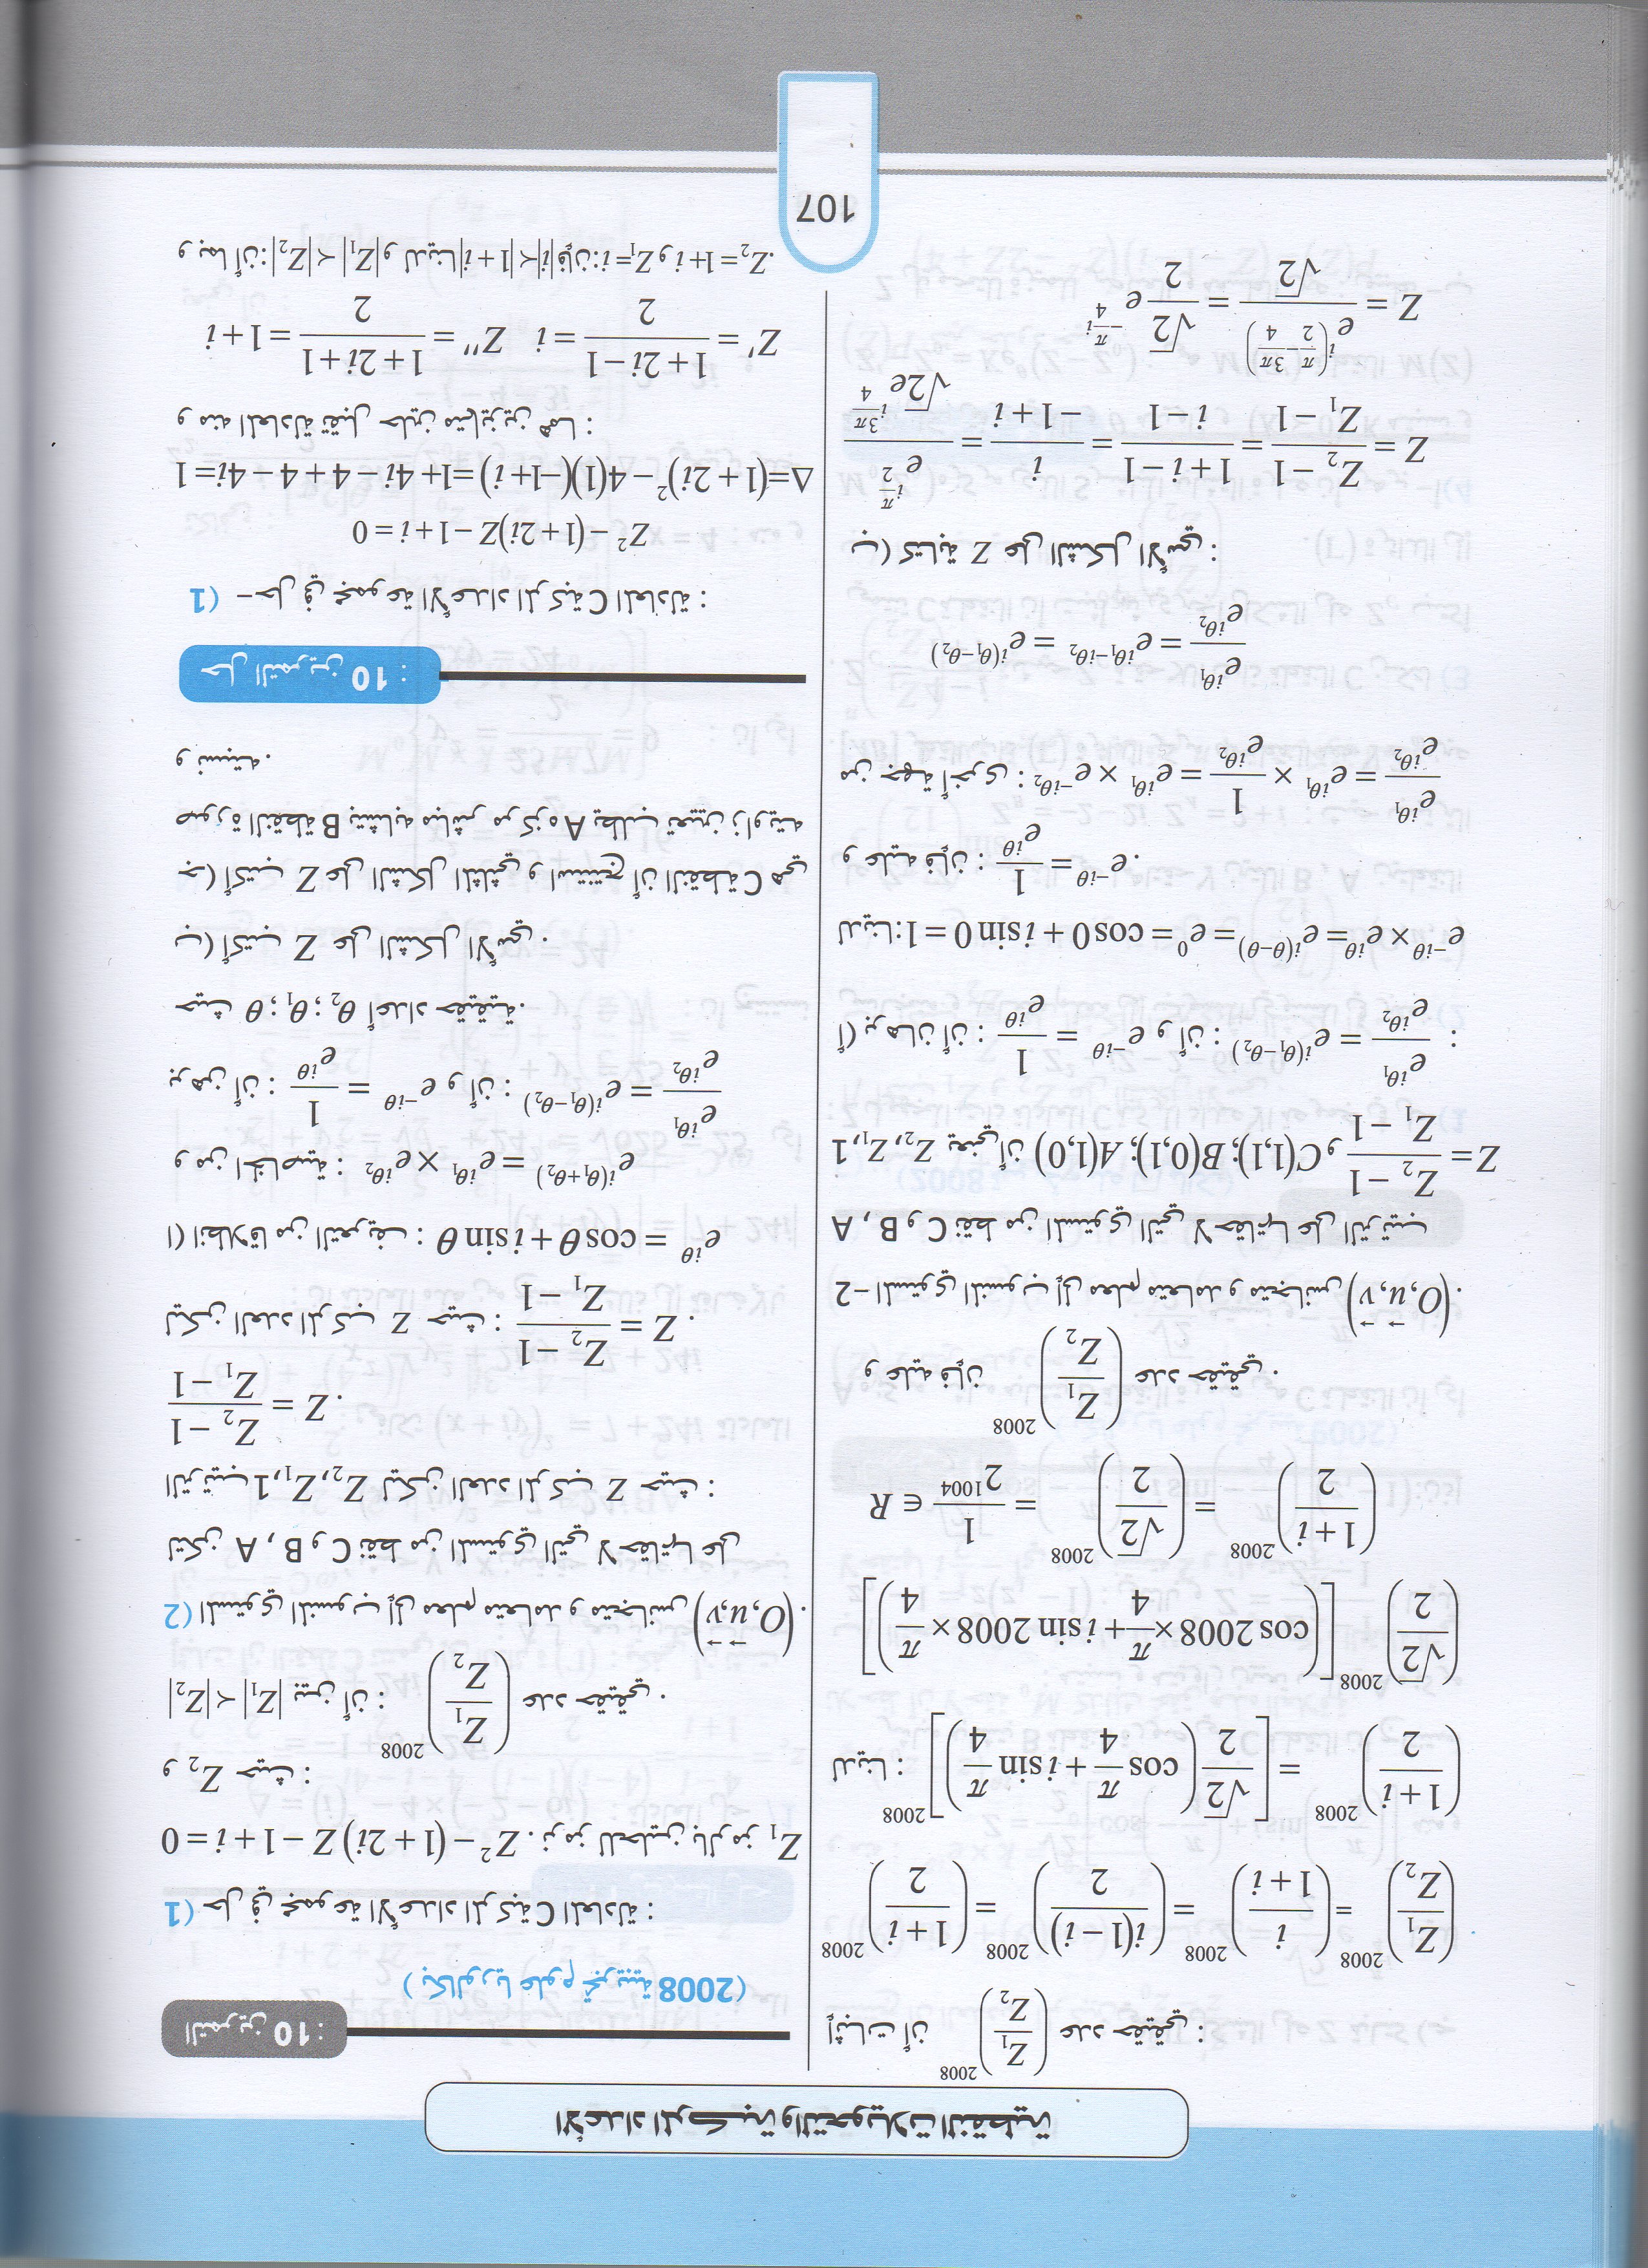 الأعداد المركبة والتحويلات النقطية
التمرين 10 :
(بكالوريا علوم تجريبية 2008)
1) حل في مجموعة الأعداد المركبة C المعادلة :
Z² − (1+2i) Z − 1 + i = 0 . نرمز للحلين بالرمز Z₁
و Z₂ حيث :
|Z₁| < |Z₂| بين أن : (Z₁/Z₂)^2008 عدد حقيقي .
2) المستوي المنسوب إلى معلم متعامد و متجانس (O,u⃗,v⃗).
لتكن A , B و C نقط من المستوي التي لاحقاتها على
الترتيب 1 ,Z₁ ,Z₂ ليكن العدد المركب Z حيث :
Z = (Z₂ − 1)/(Z₁ − 1) .
ليكن العدد المركب Z حيث : Z = (Z₂ − 1)/(Z₁ − 1) .
ا) انطلاقا من التعريف : e^(iθ) = cos θ + i sin θ
و من الخاصية : e^(i(θ₁+θ₂)) = e^(iθ₁) × e^(iθ₂)
برهن أن : e^(−iθ) = 1/e^(iθ) و أن : e^(iθ₁)/e^(iθ₂) = e^(i(θ₁−θ₂))
حيث θ ; θ₁ ; θ₂ أعداد حقيقية.
ب) أكتب Z على الشكل الأسي .
جـ) أكتب Z على الشكل المثلثي و استنتج أن النقطة C هي
صورة النقطة B بتشابه مباشر مركزه A يطلب تعيين زاويته
و نسبته .
حل التمرين 10 :
1) - حل في مجموعة الأعداد المركبة C المعادلة :
Z² − (1+2i)Z − 1 + i = 0
Δ=(1+2i)² − 4(1)(−1+i) =1+4i−4+4−4i=1
و منه المعادلة تقبل حلين متمايزين هما :
Z′ = (1+2i−1)/2 = i Z″ = (1+2i+1)/2 = 1+i
و بما أن: |Z₁| < |Z₂| و لدينا |i|<|1+i| فإن: Z₁=i و Z₂=1+i.
إثبات أن (Z₁/Z₂)^2008 عدد حقيقي :
(Z₁/Z₂)^2008 = (i/(1+i))^2008 = (i(1−i)/2)^2008 = ((1+i)/2)^2008
لدينا : ((1+i)/2)^2008 = [√2/2 (cos π/4 + i sin π/4)]^2008
(√2/2)^2008 [(cos 2008×π/4 + i sin 2008×π/4)]
((1+i)/2)^2008 = (√2/2)^2008 = 1/2^1004 ∈ R
و عليه فإن (Z₁/Z₂)^2008 عدد حقيقي .
2- المستوي المنسوب إلى معلم متعامد و متجانس (O,u⃗,v⃗).
A , B و C نقط من المستوي التي لاحقاتها على الترتيب
1 ,Z₁ ,Z₂ يعني أن A(1,0) ;B(0,1) ;C(1,1) و Z = (Z₂ − 1)/(Z₁ − 1)
أ) برهان أن : e^(−iθ) = 1/e^(iθ) و أن : e^(iθ₁)/e^(iθ₂) = e^(i(θ₁−θ₂)) :
لدينا: e^(−iθ) × e^(iθ) = e^(i(θ−θ)) = e⁰ = cos 0 + i sin 0 = 1
و عليه فإن : e^(−iθ) = 1/e^(iθ) .
من جهة أخرى : e^(iθ₁)/e^(iθ₂) = e^(iθ₁) × 1/e^(iθ₂) = e^(iθ₁) × e^(−iθ₂)
e^(iθ₁)/e^(iθ₂) = e^(iθ₁−iθ₂) = e^(i(θ₁−θ₂))
ب) كتابة Z على الشكل الأسي :
Z = (Z₂ − 1)/(Z₁ − 1) = (1+i−1)/(i−1) = i/(−1+i) = e^(iπ/2)/(√2e^(i3π/4))
Z = e^(i(π/2−3π/4))/√2 = √2/2 e^(−π/4 i)
107